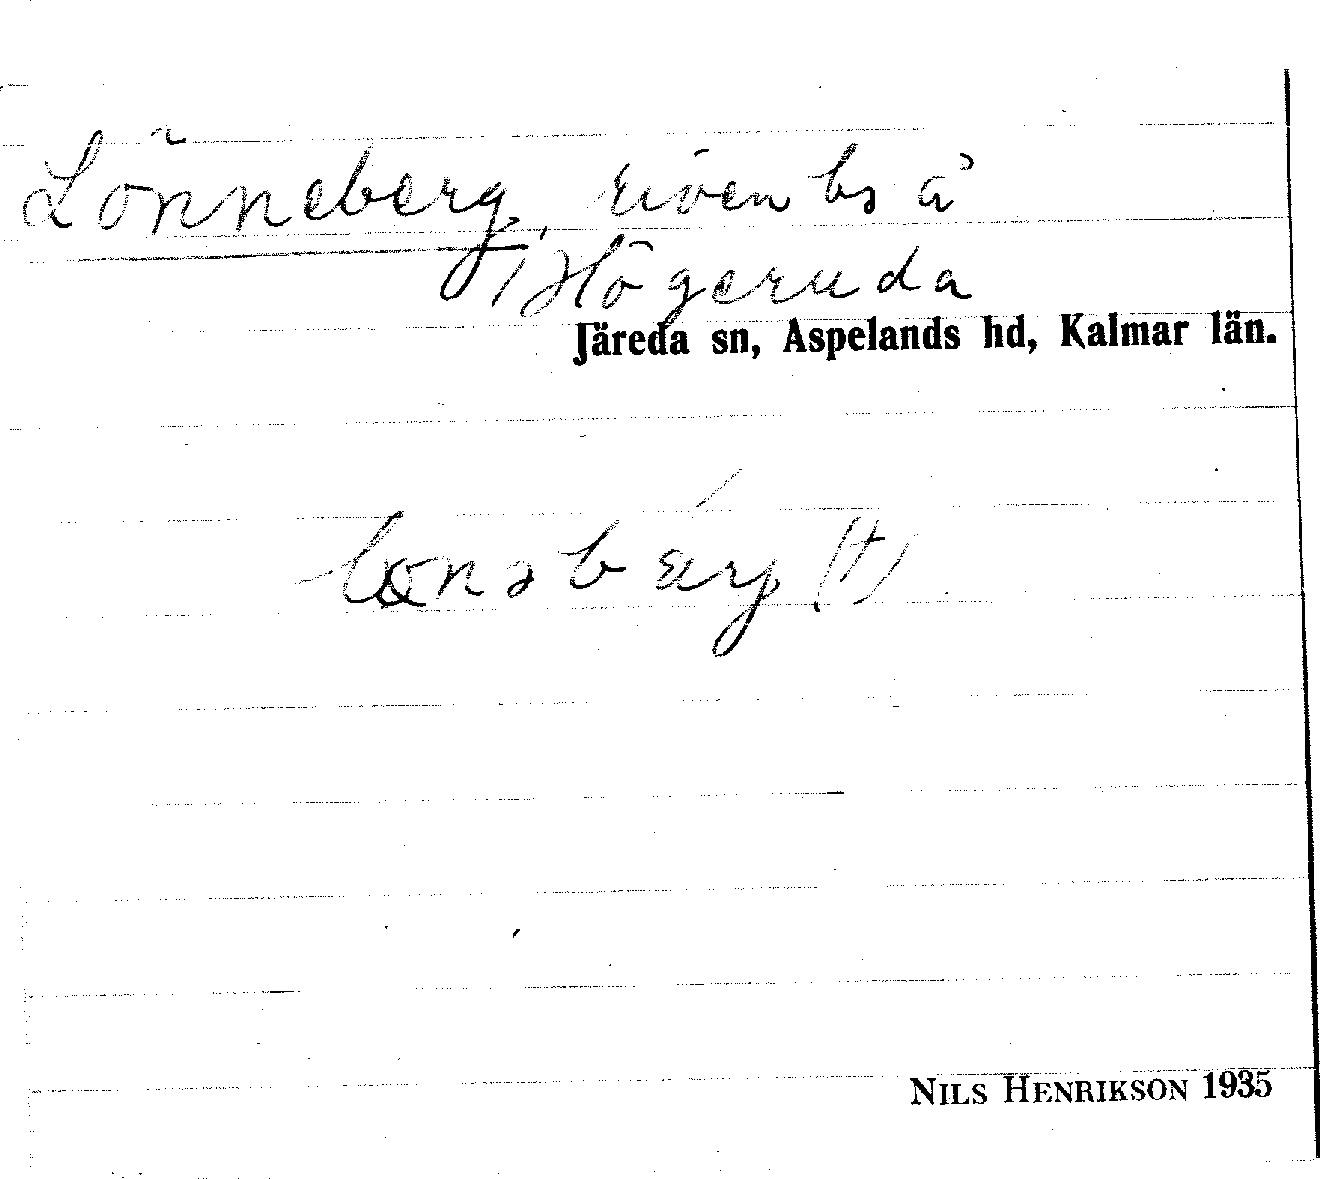 Lönneberg, riven bs å
Högeruda
Järeda sn, Aspelands hd, Kalmar län.
NILS HENRIKSON 1935